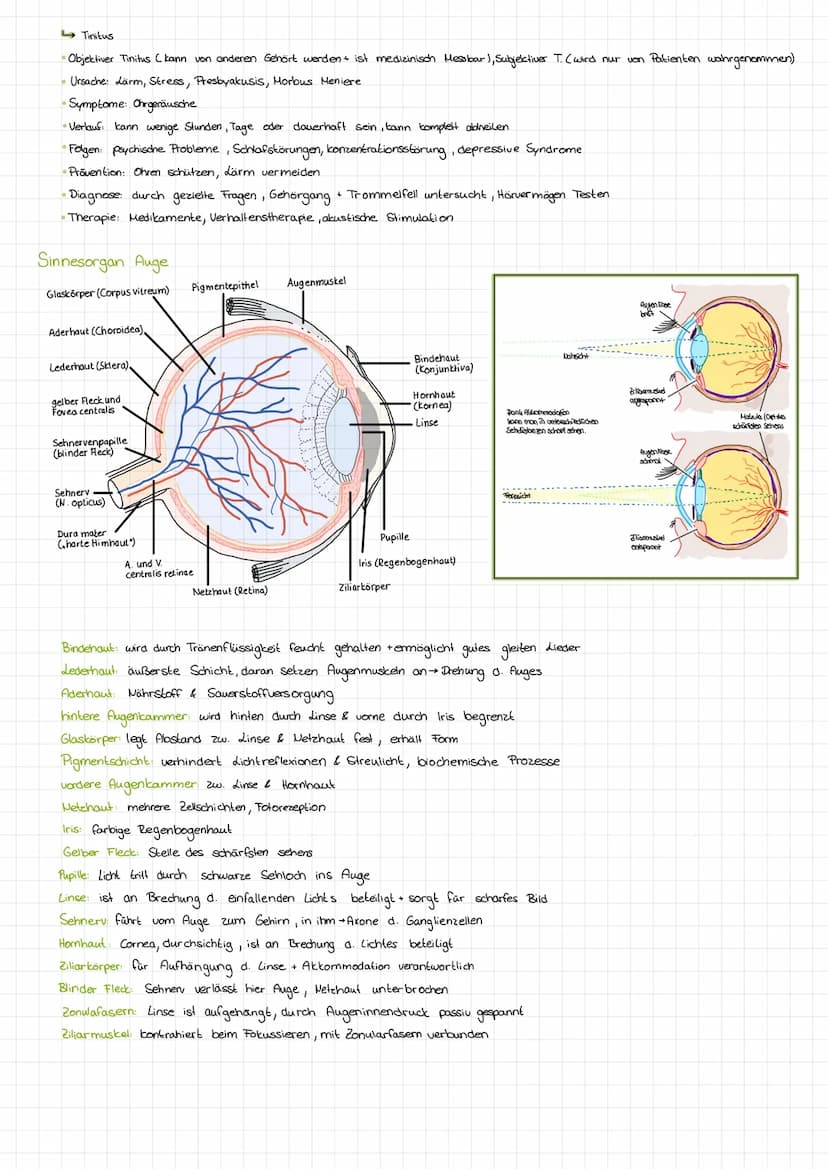 ↳ Tinitus
• Objektiver Tinitus (kann von anderen Gehört werden + ist medizinisch Messbar), Subjektiver T. (wird nur von Patienten wahrgenommen)
• Ursache: Lärm, Stress, Presbyakusis, Morbus Meniere
• Symptome: Ohrgeräusche
• Verlauf: kann wenige Stunden, Tage oder dauerhaft sein, kann komplett abheilen
• Folgen: psychische Probleme, Schlafstörungen, konzentrationsstörung, depressive Syndrome
• Prävention: Ohren schützen, Lärm vermeiden
• Diagnose: durch gezielte Fragen, Gehörgang + Trommelfell untersucht, Hörvermögen Testen
• Therapie: Medikamente, Verhaltenstherapie, akustische Stimulation
Sinnesorgan Auge
Glaskörper (Corpus vitreum)
Pigmentepithel
Augenmuskel
Aderhaut (Choroidea)
Lederhaut (Sklera)
gelber Fleck und
Fovea centralis
Sehnervenpapille
(blinder Fleck)
Sehnerv
(N. opticus)
Dura mater
("harte Hirnhaut")
A. und V.
centralis retinae
Netzhaut (Retina)
Ziliarkörper
Iris (Regenbogenhaut)
Pupille
Linse
Hornhaut
(Kornea)
Bindehaut
(Konjunktiva)
Augenlinse
Nahsicht
Ziliarmuskel
angespannt
Dank Akkommodation
kann man in unterschiedlichen
Sehdistanzen scharf sehen.
Makula (Ort des
schärfsten Sehens)
Augenlinse
normal
Fernsicht
Ziliarmuskel
entspannt
Bindehaut: wird durch Tränenflüssigkeit feucht gehalten + ermöglicht gutes gleiten Lieder
Lederhaut: äußerste Schicht, daran setzen Augenmuskeln an → Drehung d. Auges
Aderhaut: Nährstoff & Sauerstoffversorgung
hintere Augenkammer: wird hinten durch Linse & vorne durch Iris begrenzt
Glaskörper: legt Abstand zw. Linse & Netzhaut fest, erhält Form
Pigmentschicht: verhindert Lichtreflexionen & Streulicht, biochemische Prozesse
vordere Augenkammer: zw. Linse & Hornhaut
Netzhaut: mehrere Zellschichten, Fotorezeption
Iris: farbige Regenbogenhaut
Gelber Fleck: Stelle des schärfsten sehens
Pupille: Licht tritt durch schwarze Sehloch ins Auge
Linse: ist an Brechung d. einfallenden Lichts beteiligt + sorgt für scharfes Bild
Sehnerv: führt vom Auge zum Gehirn, in ihm → Axone d. Ganglienzellen
Hornhaut: Cornea, durchsichtig, ist an Brechung d. Lichtes beteiligt
Ziliarkörper: für Aufhängung d. Linse + Akkommodation verantwortlich
Blinder Fleck: Sehnerv verlässt hier Auge, Netzhaut unterbrochen
Zonulafasern: Linse ist aufgehängt, durch Augeninnendruck passiv gespannt
Ziliarmuskel: kontrahiert beim Fokussieren, mit Zonularfasern verbunden